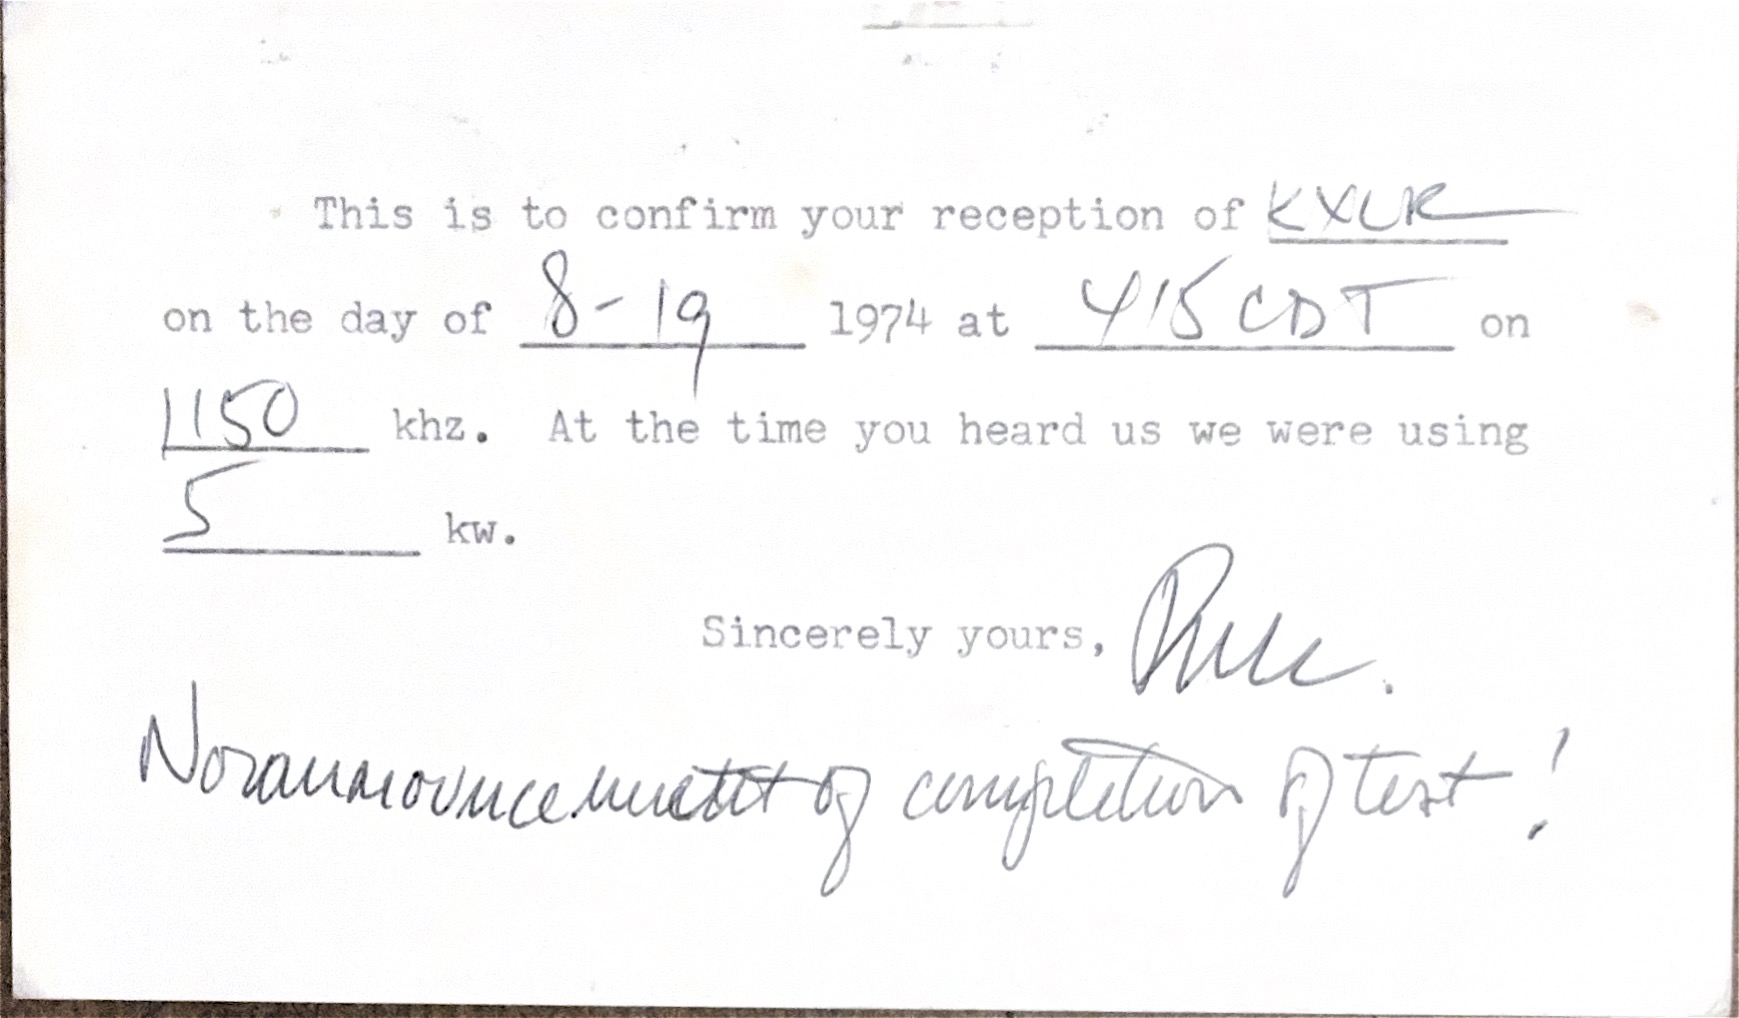 This is to confirm your reception of KXLR
on the day of 8-19 1974 at 415 CDT on
1150 khz. At the time you heard us we were using
5 kw.
Sincerely yours,
of completion of test!